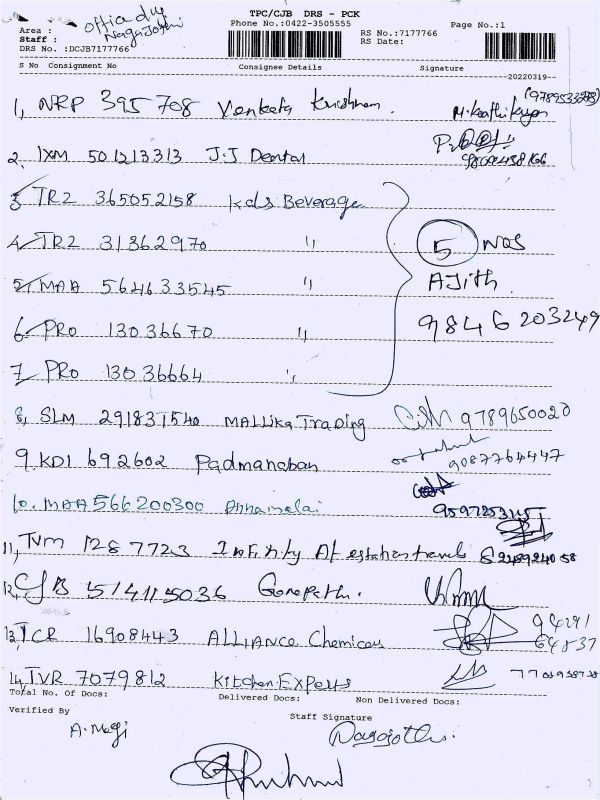 TPC/CJB DRS - PCK
Phone No.:0422-3505555
Page No.:1
Area :
Staff :
DRS No. :DCJB7177766
RS No.:7177766
RS Date:
S No Consignment No Consignee Details Signature
--20220319--
1, NRP 395 708 Venkata Krishnan.
2. IXM 501213313 J.J Dental
3 TR2 365052158 kds Beverage
4. TR2 31362970 "
5 NOS
5. MAA 564633545 "
Ajith.
6. PRO 13036670 "
9846203249
7. PRO 13036664 "
8, SLM 291831540 MALLika Trading 9789650020
9. KDI 692602 Padmanaban 9087764447
10. MAA 566200300 Annamalai
11, TVM 1287723 Infinity
12, CJB 514115036 Ganapathi.
13, TCR 16908443 ALLIANCE Chemicals
94291
64837
14, TVR 7079812 Kitchen Experts
Total No. Of Docs: Delivered Docs: Non Delivered Docs:
Verified By
Staff Signature